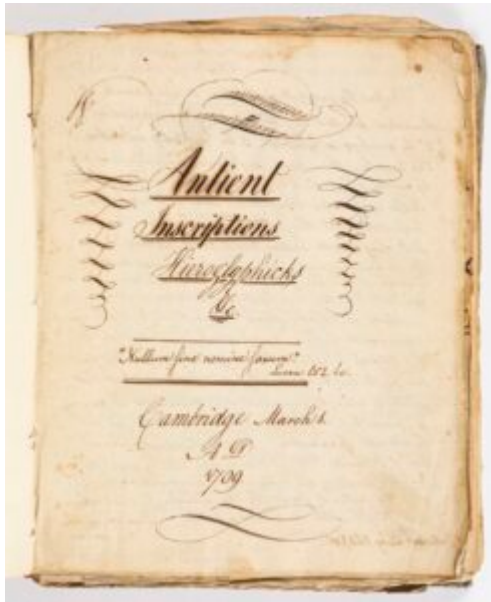 Antient
Inscriptions
Hieroglyphicks
&c
"Nullum sine nomine saxum."
Cambridge March
A D
1799